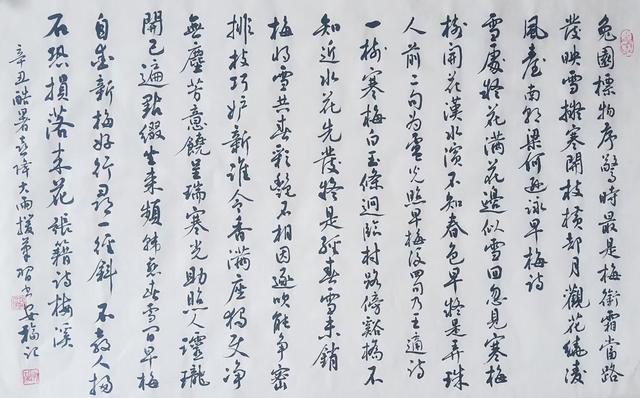 兔園標物序驚時最是梅銜霜當路
發映雪擬寒開枝橫却月觀花繞凌
風臺南朝梁何遜詠早梅詩
雪處疑花滿花邊似雪回忽見寒梅
樹開花漢水濱不知春色早疑是弄珠
人前二句為盧光照早梅後四句乃王適詩
一樹寒梅白玉條迥臨村路傍谿橋不
知近水花先發疑是經春雪未銷
梅將雪共春彩艷不相因逐吹能爭密
排枝巧妒新誰令香滿座獨使净
無塵芳意饒呈瑞寒光助照人玲瓏
開已遍點綴坐來頻韓愈春雪間早梅
自愛新梅好行尋一徑斜不教人掃
石恐損落來花張籍詩梅溪
辛丑酷暑喜降大雨援筆習書安福記